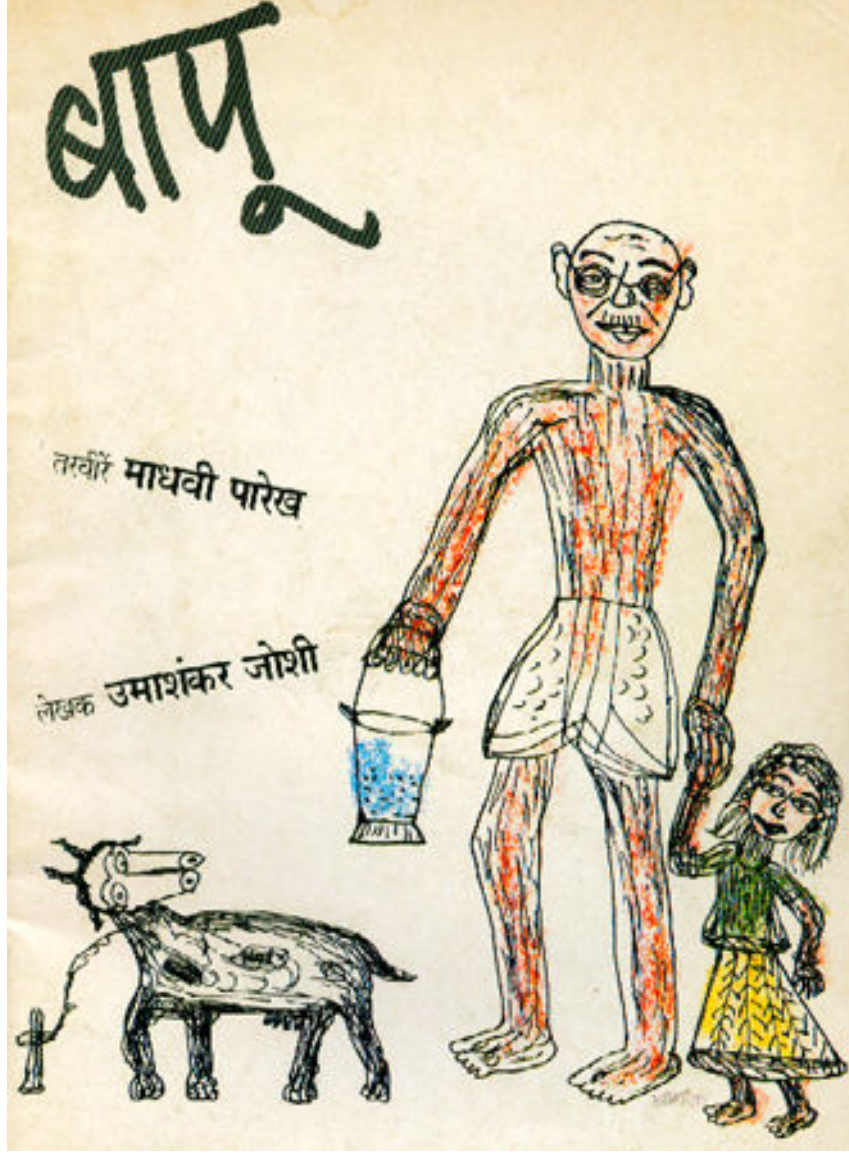 बापू
तस्वीरें माधवी पारेख
लेखक उमाशंकर जोशी